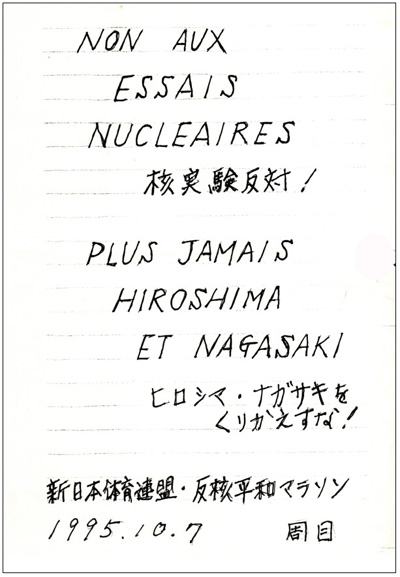 NON AUX
ESSAIS
NUCLEAIRES
核実験反対！
PLUS JAMAIS
HIROSHIMA
ET NAGASAKI
ヒロシマ・ナガサキを
くりかえすな！
新日本体育連盟・反核平和マラソン
1995.10.7 周目